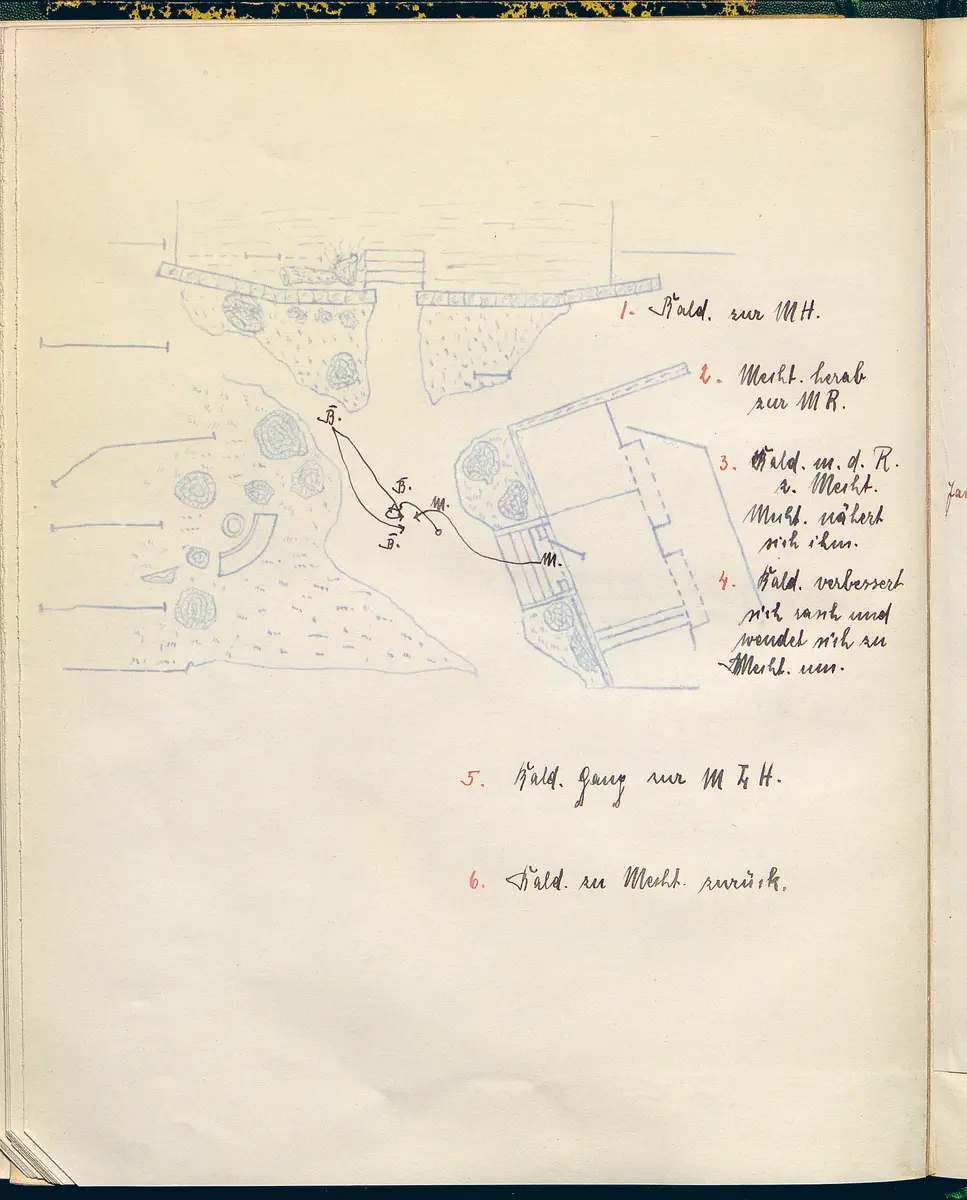 1. Bald. zur MH.
2. Mecht. herab
zur MR.
B.
3. Bald. m. d. R.
z. Mecht.
Mecht. nähert
sich ihm.
B.
M.
B.
M.
4. Bald. verbessert
sich rasch und
wendet sich zu
Mecht. um.
5. Bald. Gang zur M L H.
6. Bald. zu Mecht. zurück.